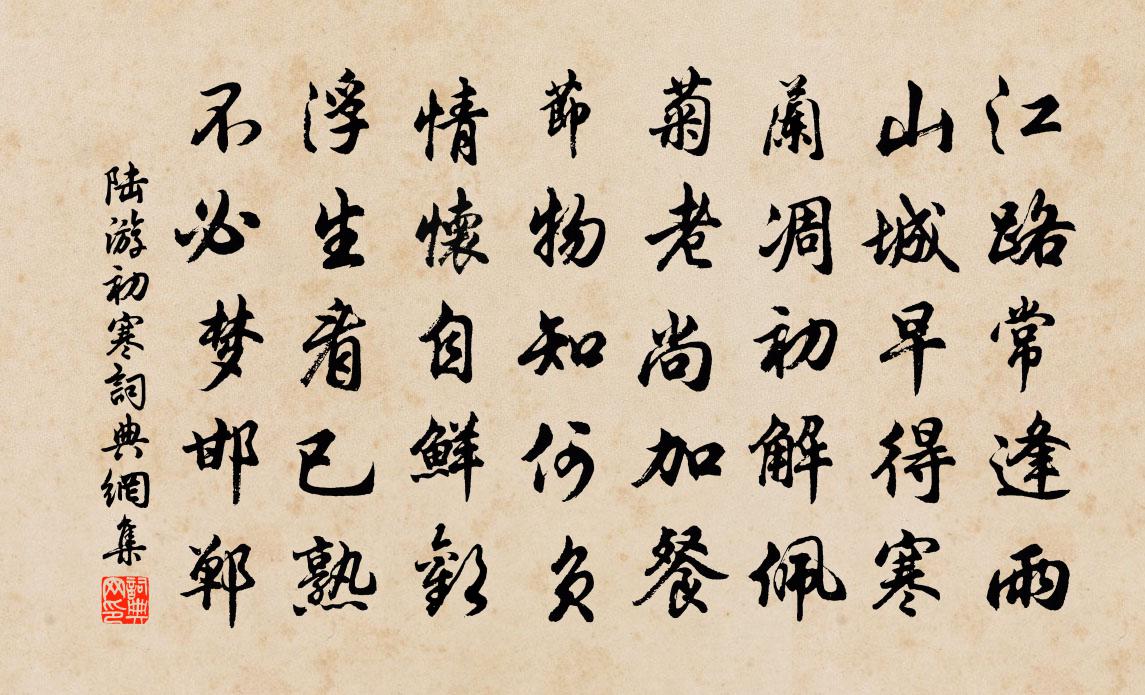 江路常逢雨
山城早得寒
蘭凋初解佩
菊老尚加餐
節物知何負
情懷自鮮歡
浮生看已熟
不必梦邯鄲
陆游初寒詞典網集
詞典网印